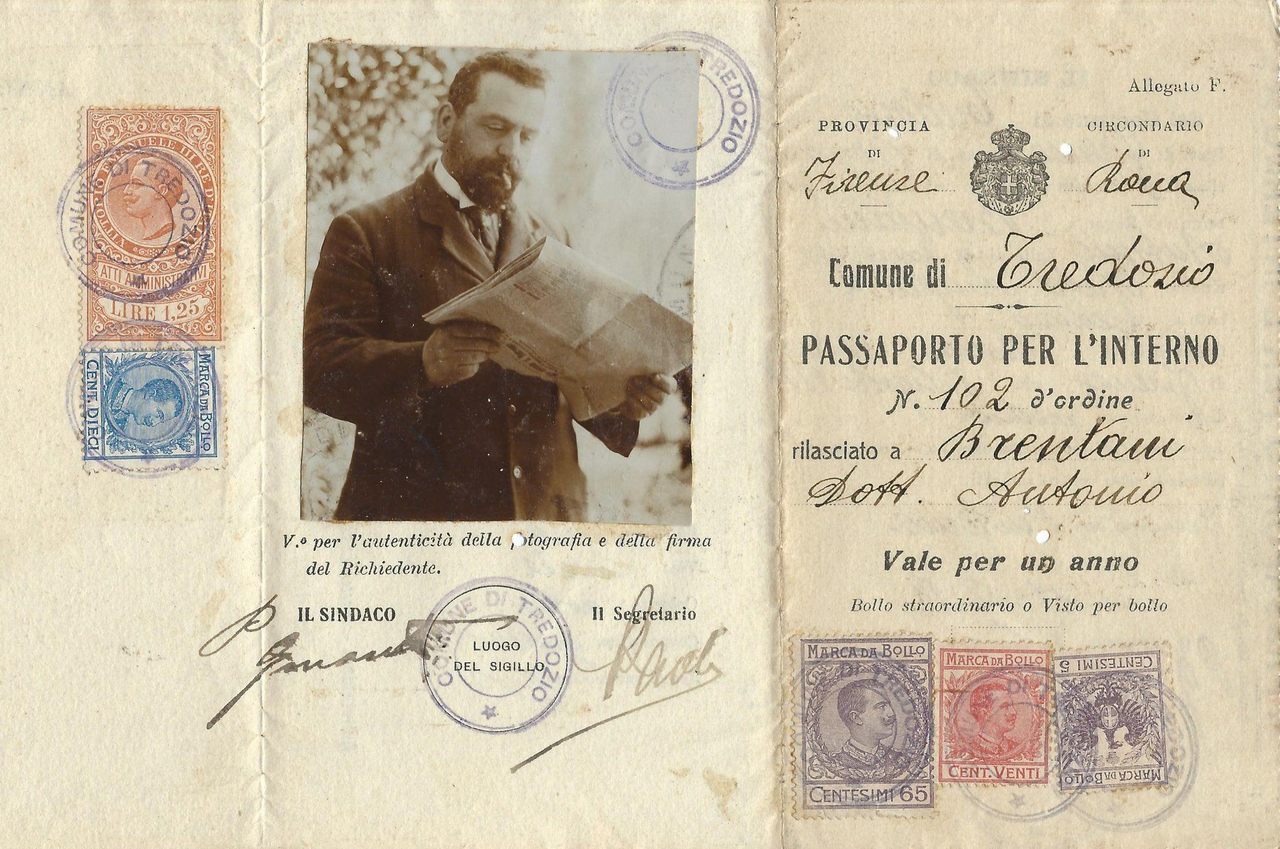 VITTORIO EMANUELE III RE D'
ATTI AMMINISTRATIVI
LIRE 1,25
COMUNE DI TREDOZIO
MARCA DA BOLLO
CENT. DIECI
COMUNE DI TREDOZIO
V.º per l'autenticità della fotografia e della firma
del Richiedente.
IL SINDACO
Il Segretario
P
COMUNE DI TREDOZIO
LUOGO
DEL SIGILLO
Allegato F.
PROVINCIA
DI
Firenze
CIRCONDARIO
DI
Rocca
Comune di Tredozio
PASSAPORTO PER L'INTERNO
N. 102 d'ordine
rilasciato a Brentani
Dott. Antonio
Vale per un anno
Bollo straordinario o Visto per bollo
MARCA DA BOLLO
CENTESIMI 65
MARCA DA BOLLO
CENT. VENTI
CENTESIMI 5
MARCA DA BOLLO
DI TREDOZIO